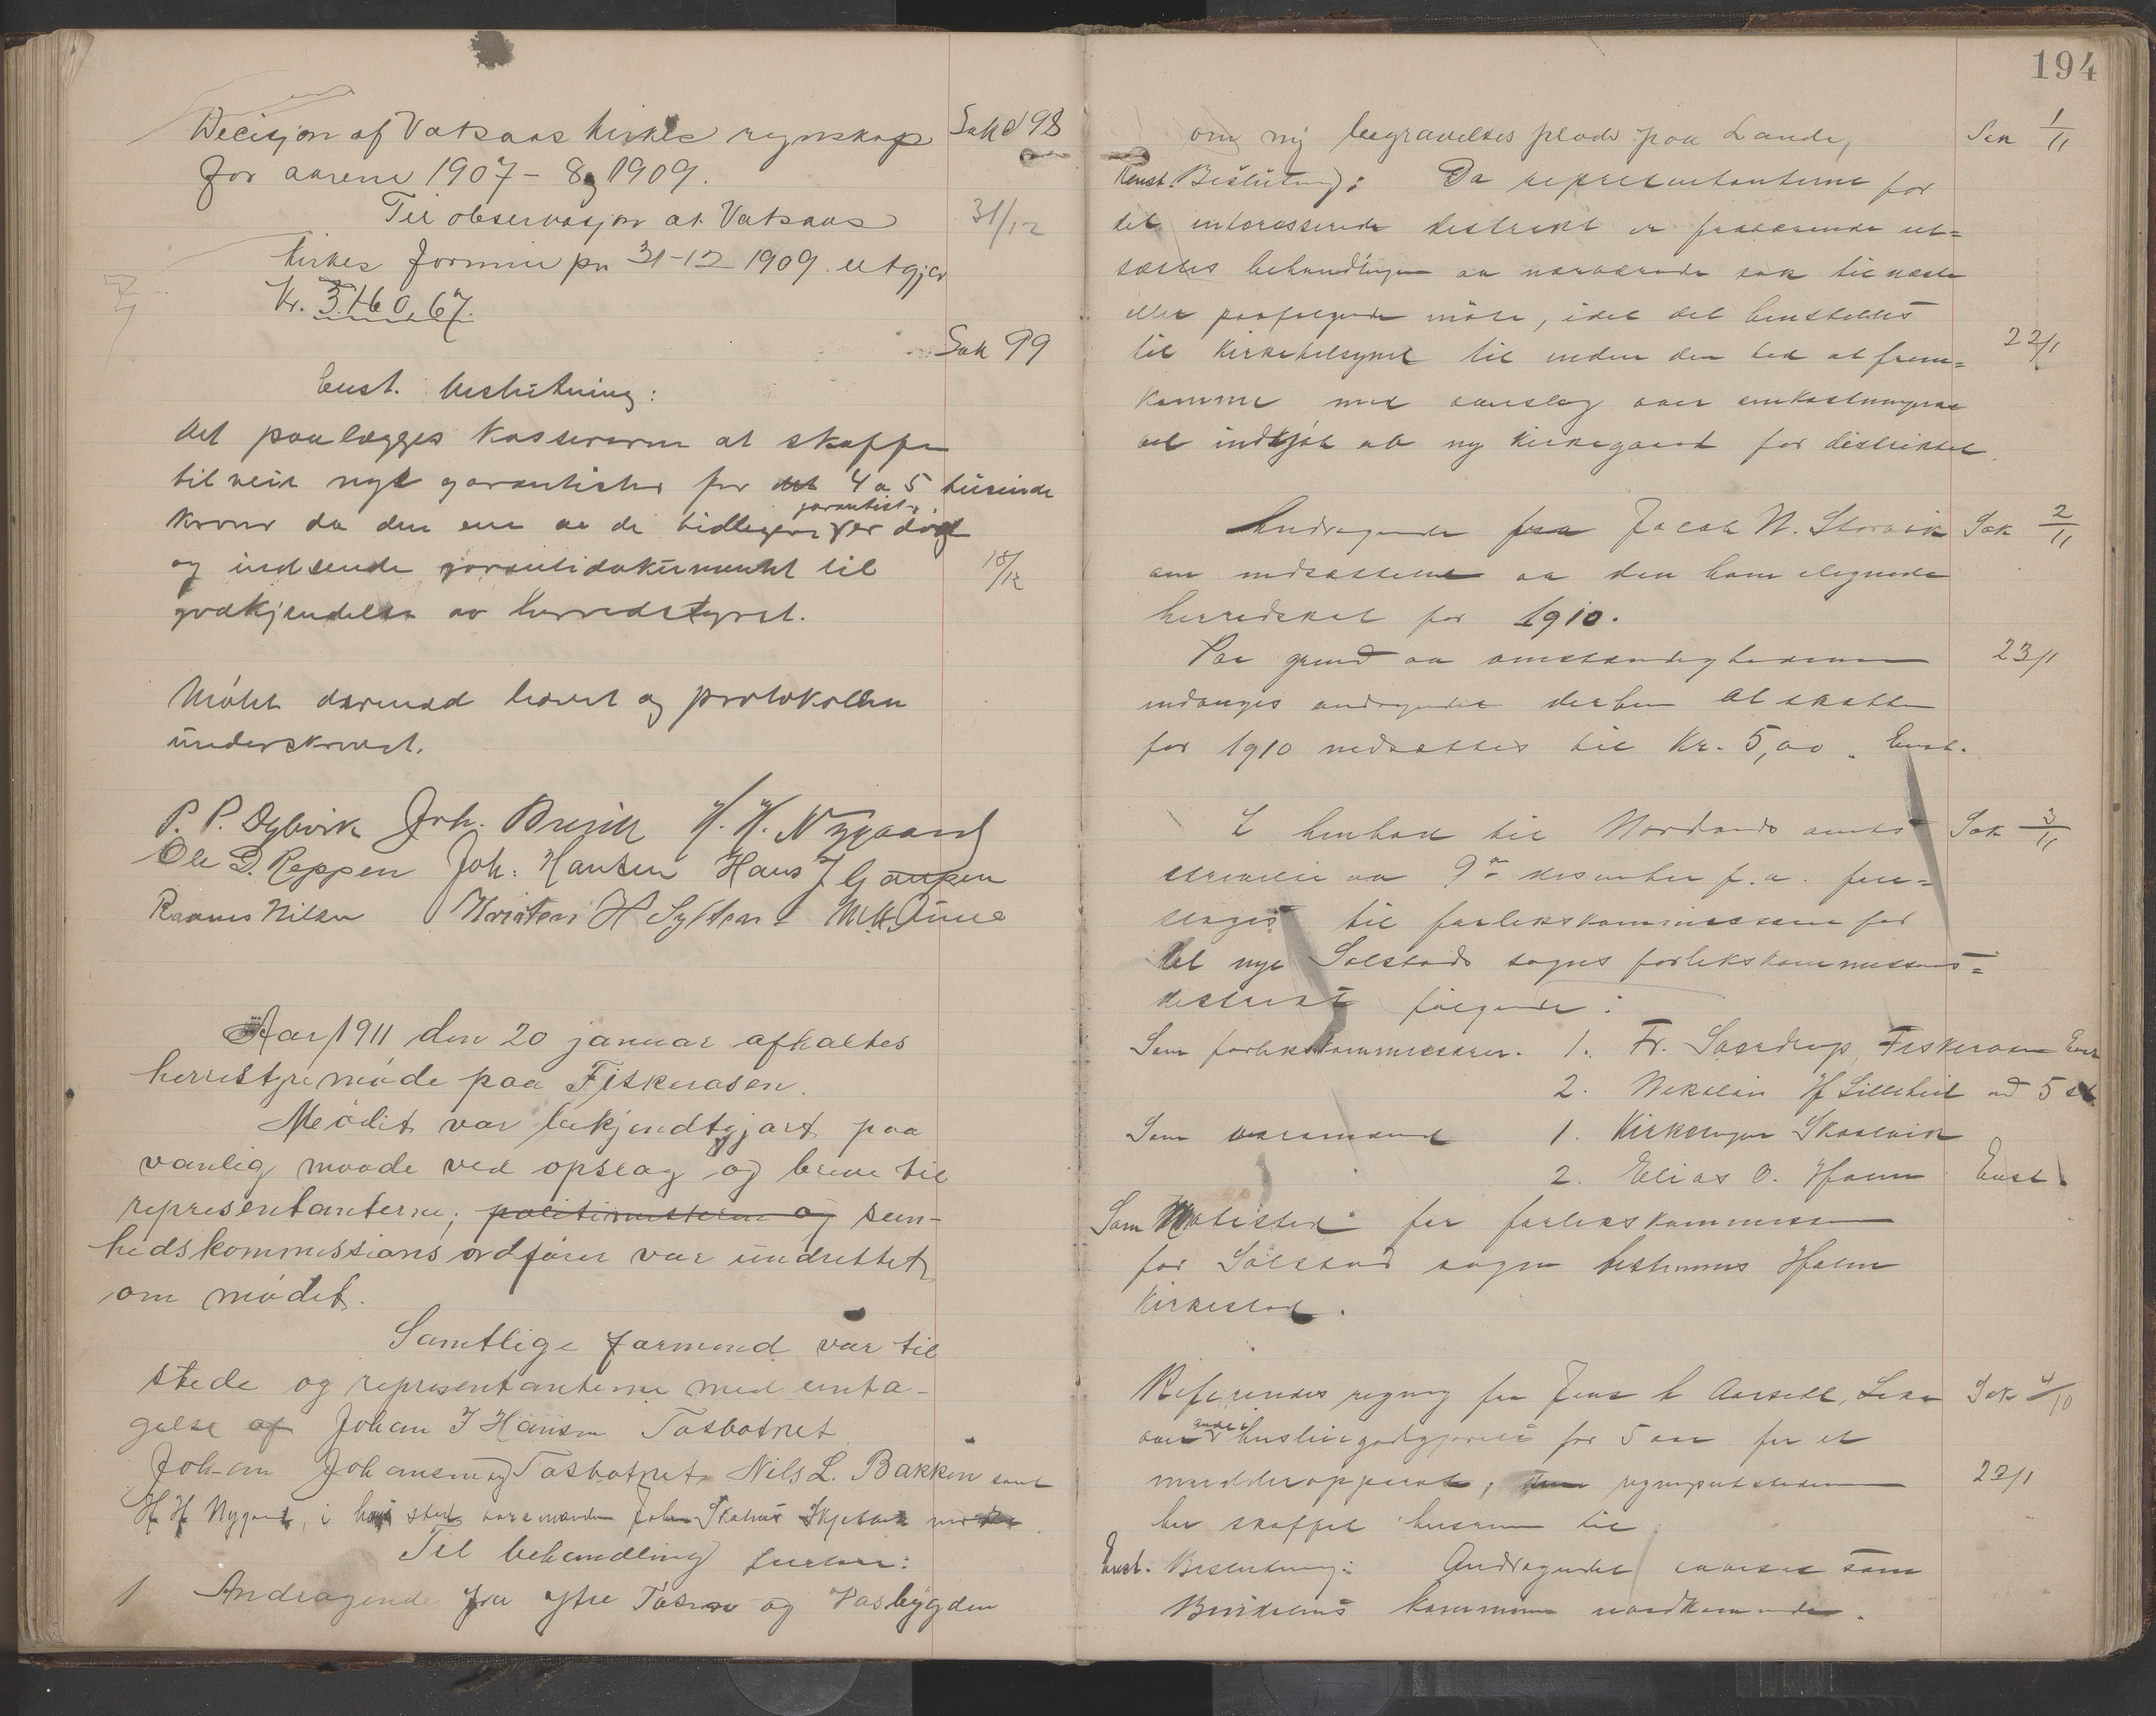 Decisjon af Vatsaas kirkes regnskap Sak 98
for aarene 1907-8 og 1909.
Til observasjon at Vatsaas 31/12
kirkes formue pr 31-12-1909 utgjør
Kr. 3.160,67.
Sak 99
Enst. beslutning:
det paalægges kassereren at skaffe
tilveie nye garantister for det 4 a 5 tusinde
kroner da den ene av de tidligere garantister er død
og indsende garantidokumentet til 18/12
godkjendelse av herredstyret.
Møtet dermed hævet og protokollen
underskrevet.
P. P. Dybvik Joh. Brevik H. H. Nygaard
Ole D. Reppen Joh. Hansen Hans J Gaupen
Rasmus Nilsen Kristen H Sylten
Aar 1911 den 20 januar afholtes
herrestyremøde paa Fiskerosen.
Mødet var bekjendtgjort paa
vanlig maade ved opslag og breve til
representanterne; politimesteren og sun-
hedskommissions ordfører var undrettet
om mødet.
Samtlige formend var til
stede og representanterne med unta-
gelse af Johan J Hansen Tosbotnet
Johan Johansen Tosbotnet Nils L. Bakken samt
H H Nygaard, i hans sted varamanden Johan
Til behandling
1 Andragende fra ytre Tosen og Vasbygden
194
om ny begravelses plads paa Lande, Sak 1/11
Enst. Beslutning: Da representanterne for
det interesserede distrikt er fraværende ut=
sættes behandlingen av nærværende sak til næste
eller paafølgende møte, idet det henstilles
til Kirketilsynet til inden den tid at frem= 22/1
komme med overslag over omkostningerne
ved indkjøb av ny kirkegaard for distriktet.
Andragende fra Jacob N. Storvik Sak 2/11
om nedsættelse av den ham ilignede
herredskat for 1910.
Paa grund av omstændighederne 23/1
indvilges andragendet derhen at skatten
for 1910 nedsættes til Kr. 5,00. Enst.
I henhold til Nordlands amts Sak 3/11
skrivelse av 9de desember f.a. fore=
slages til forlikskommissærer for
det nye Solstads sogns forlikskommissions=
distrikt følgende:
Som forlikskommissærer. 1. Fr. Sverdrup, Fiskerosen Enst
2. Nikolai H Lilleheil ad 5 st
Som varamænd 1. Kirkesanger Skaalvik
2. Elias O. Holm Enst.
Som Møtested for forlikskommissionen
for Solstad sogn bestemmes Holm
Kirkested.
Refereredes regning fra Jens Aarsetl, Leka Sak 4/10
over huslеiegodtgjørelse for 5 aar for et
mudderapparat, 22/1
har skaffet husrum til.
Enst. Beslutning: Andragendet avvises som
Bindalens kommune uvedkommende.